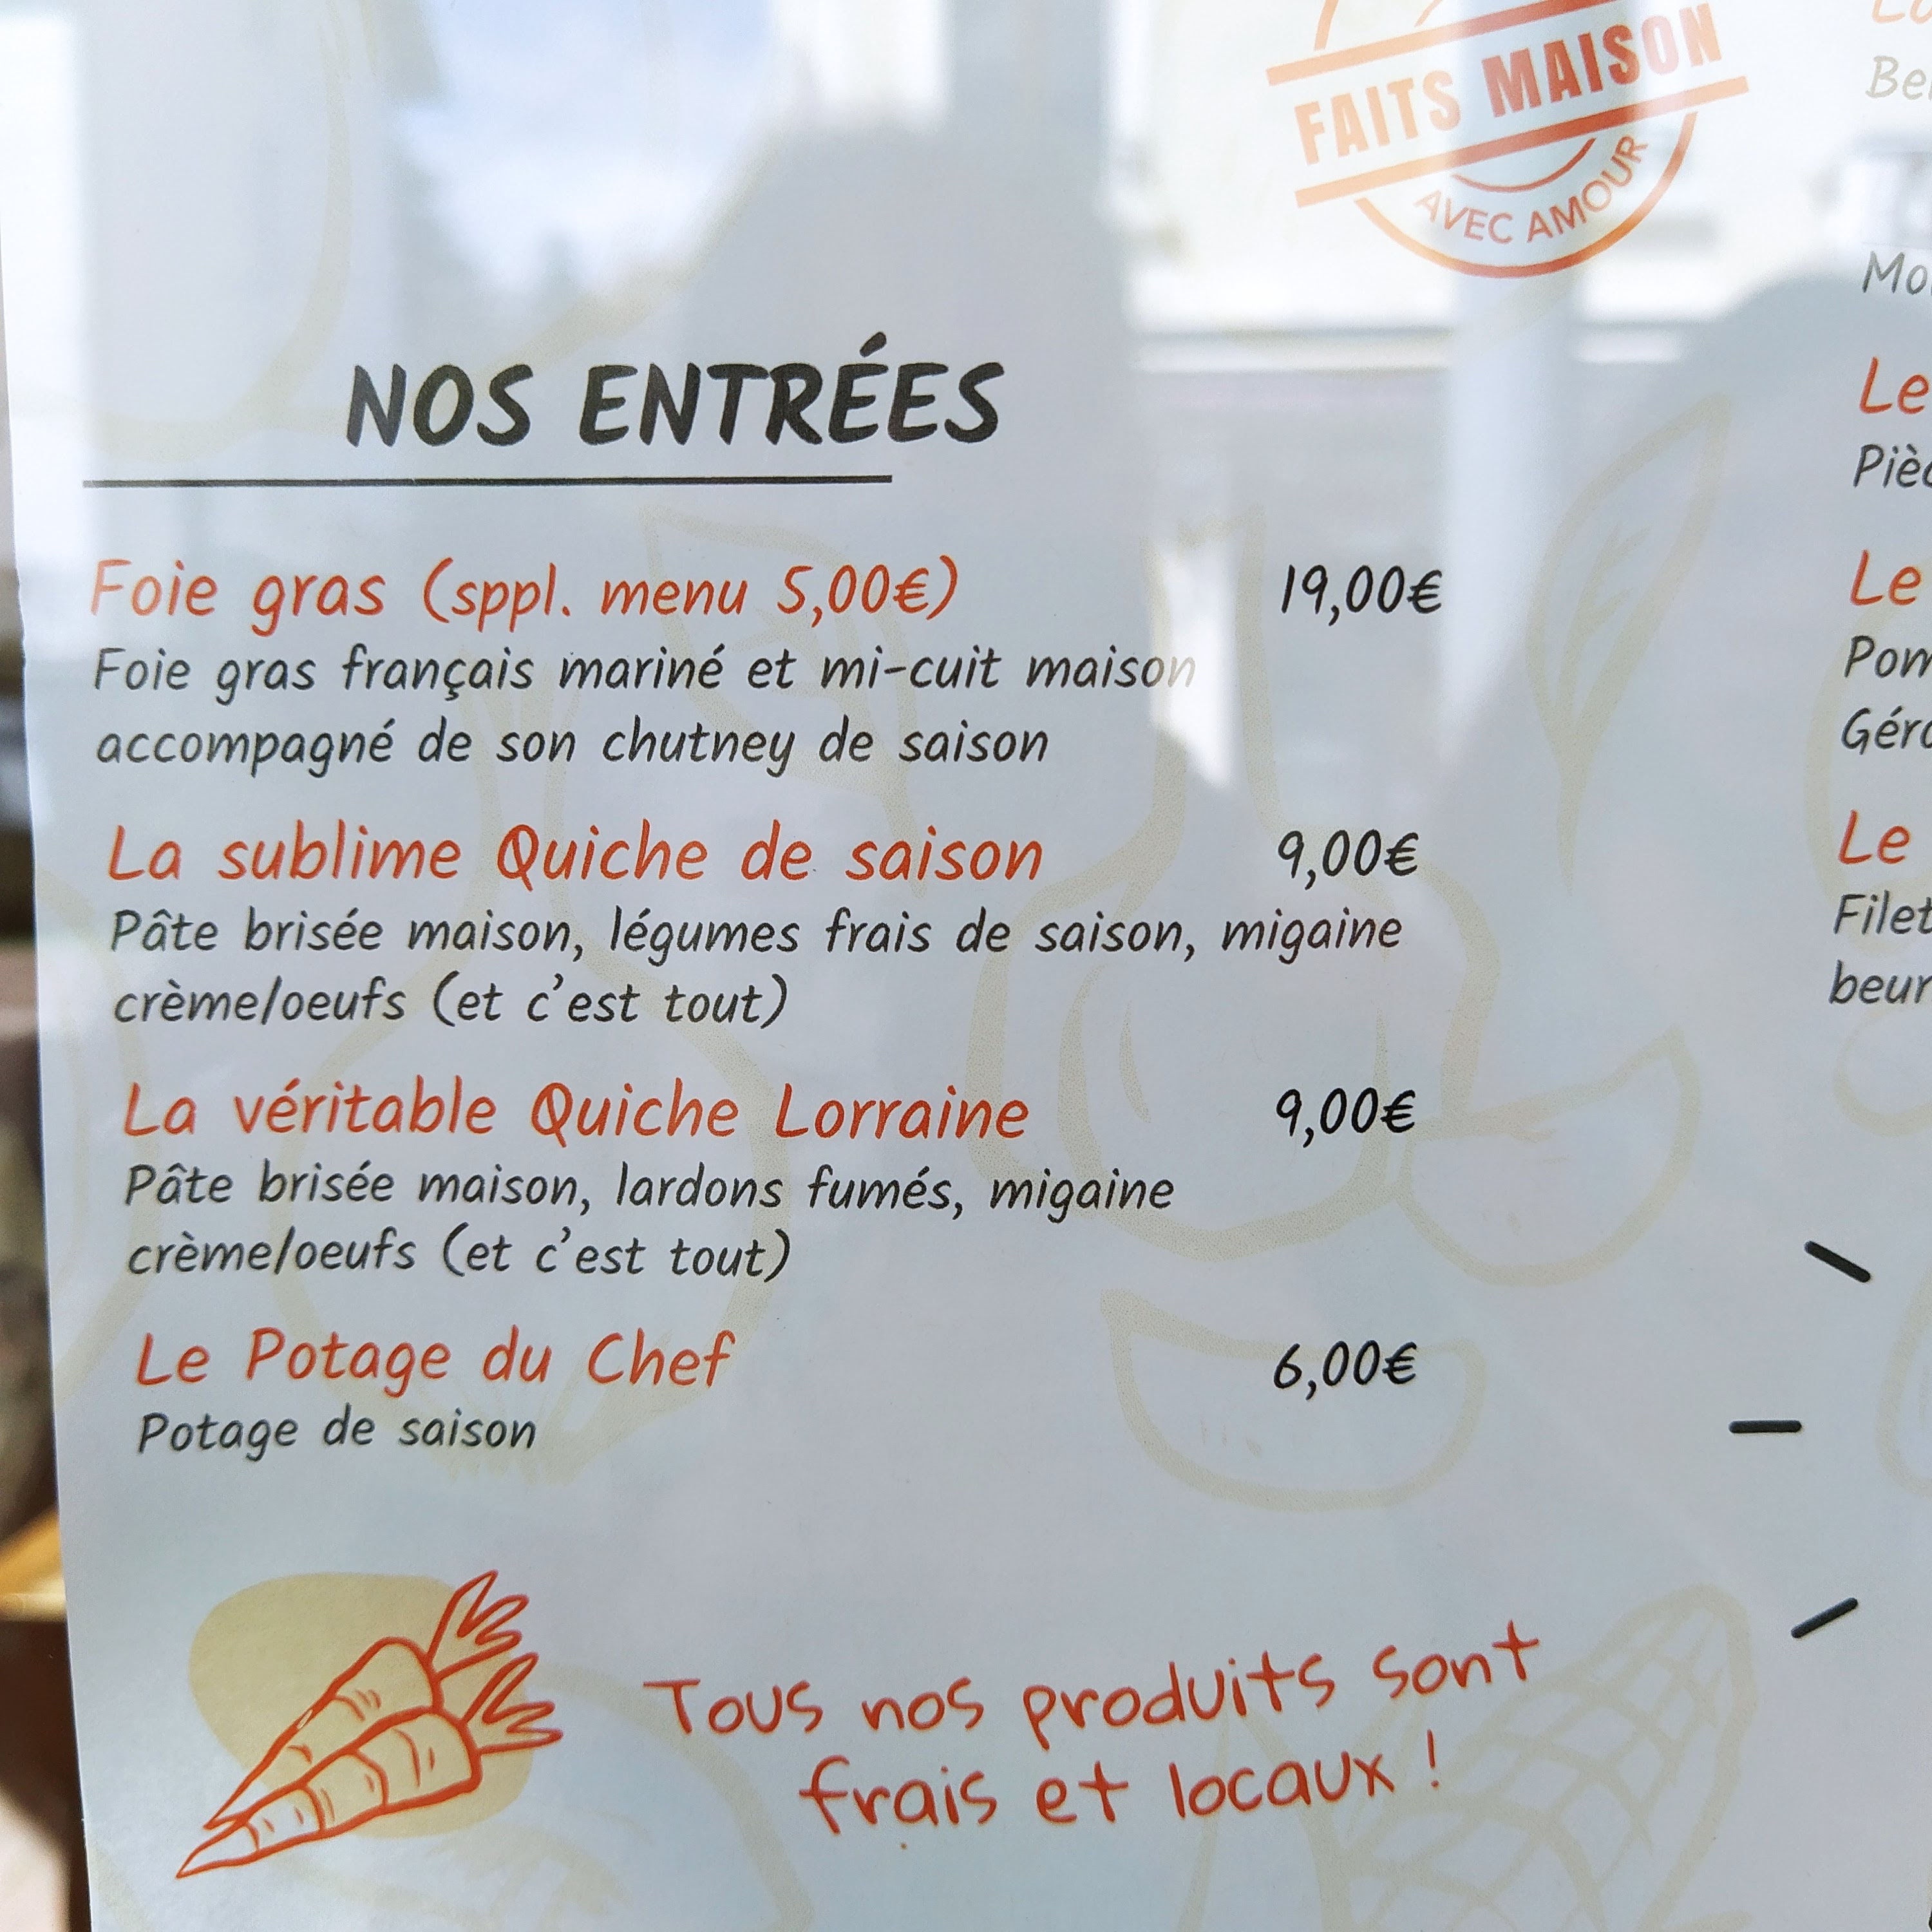 FAITS MAISON
AVEC AMOUR
NOS ENTRÉES
Foie gras (sppl. menu 5,00€) 19,00€
Foie gras français mariné et mi-cuit maison
accompagné de son chutney de saison
La sublime Quiche de saison 9,00€
Pâte brisée maison, légumes frais de saison, migaine
crème/oeufs (et c'est tout)
La véritable Quiche Lorraine 9,00€
Pâte brisée maison, lardons fumés, migaine
crème/oeufs (et c'est tout)
Le Potage du Chef 6,00€
Potage de saison
Tous nos produits sont
frais et locaux !
Le
Le
Le
Filet